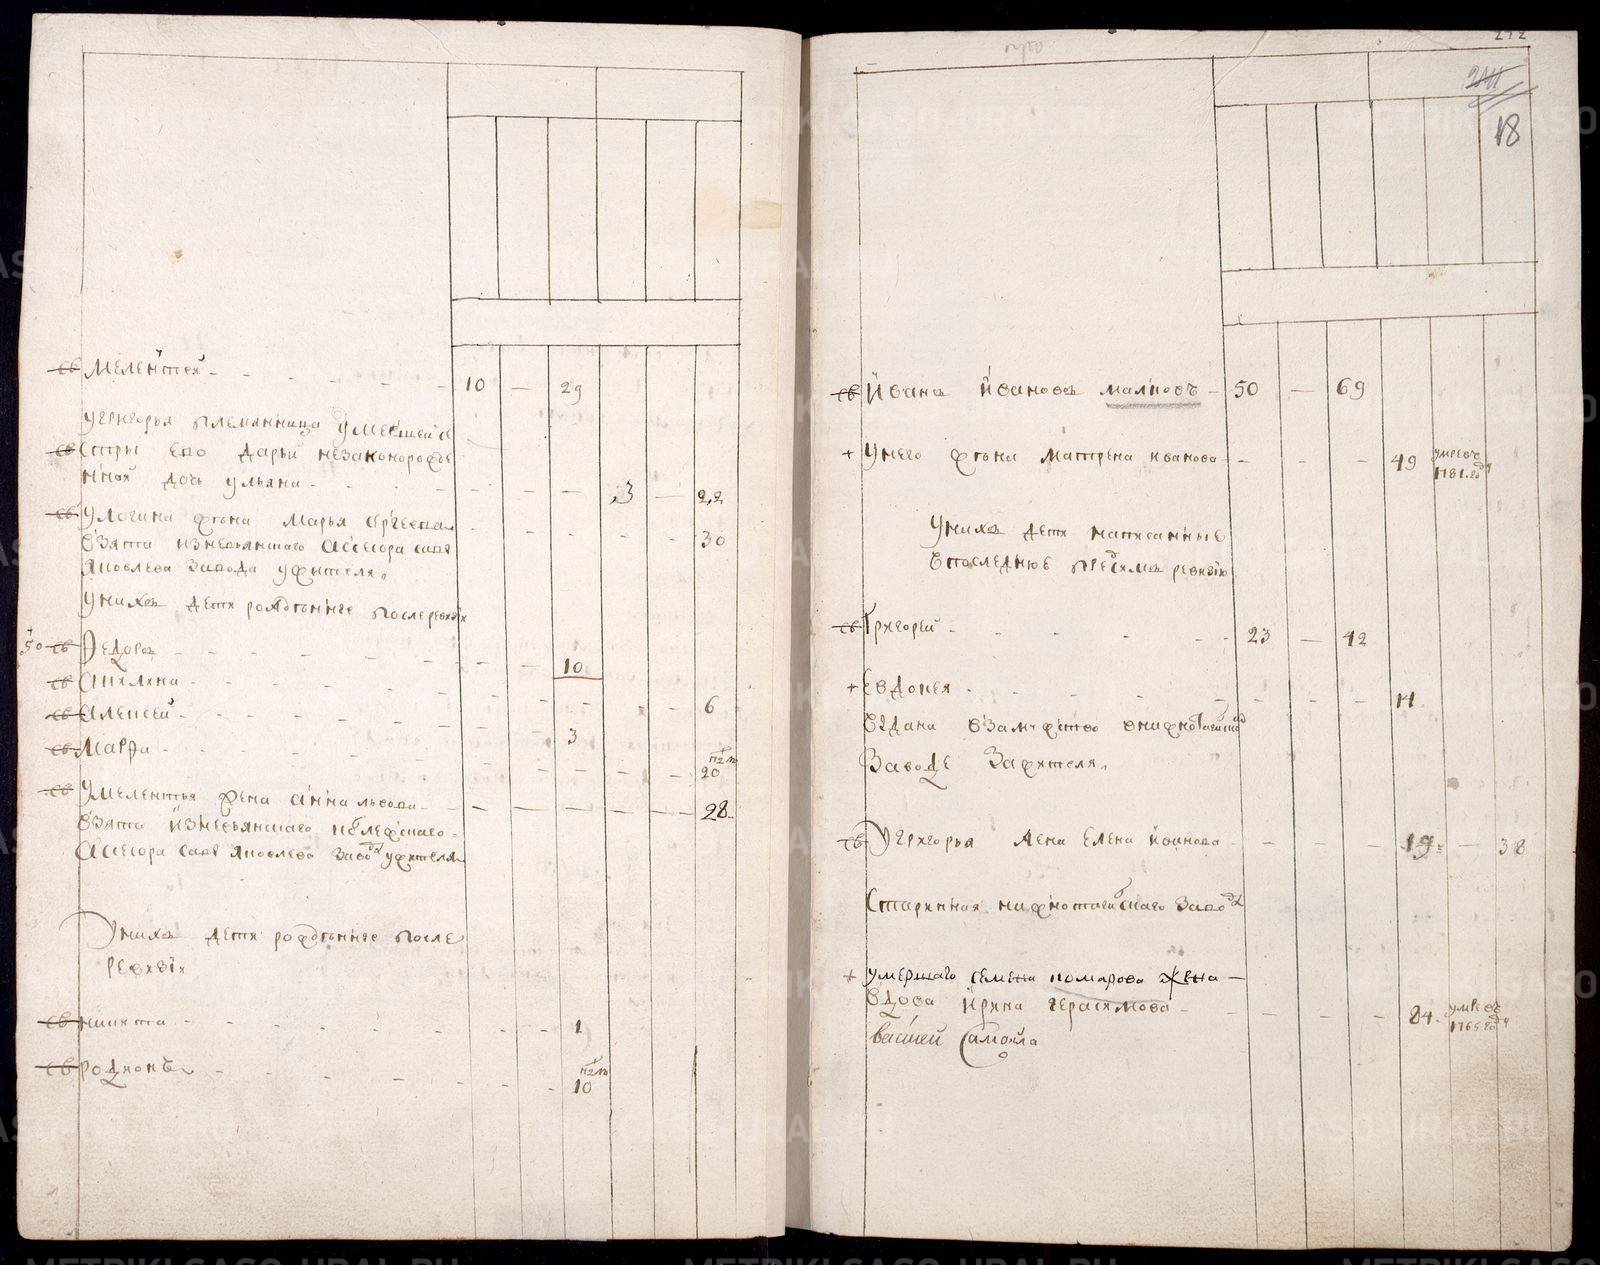 св Мелентей 10 — 29
у Григорья племянница умершей
св сестры ево Дарьи незаконорожде
нная дочь Ульяна 3 — 22
св у Логина жена Марья Сергеева 30
взята из Невьянского асессора Савы
Яковлева завода у жителя
у них дети рожденные после ревизии
50 св Федор 10
св Апилина 6
св Алексей 3
св Марфа нед 20
св у Мелентья жена Анна Львова 28
взята из Невьянского
асессора Савы Яковлева завода у жителя
у них дети рожденные после
ревизии
св Никита 1
св Родионъ нед 10
272
18
св Иванъ Ивановъ Маликовъ 50 — 69
+ у него жена Матрена Иванова 49 умре въ
1781 году
у них дети написанные
в последнюю пред сим ревизию
св Григорей 23 — 42
+ Евдокея 14
выдана в замужество в Нижнотагильском
заводе за жителя
св у Григорья жена Елена Иванова 19 — 38
старинная Нижнотагильского завода
+ умершаго Семена Комарова жена
вдова Ирина Герасимова 84 умре въ
1765 году
Самойла
METRIKI.GASO-URAL.RU